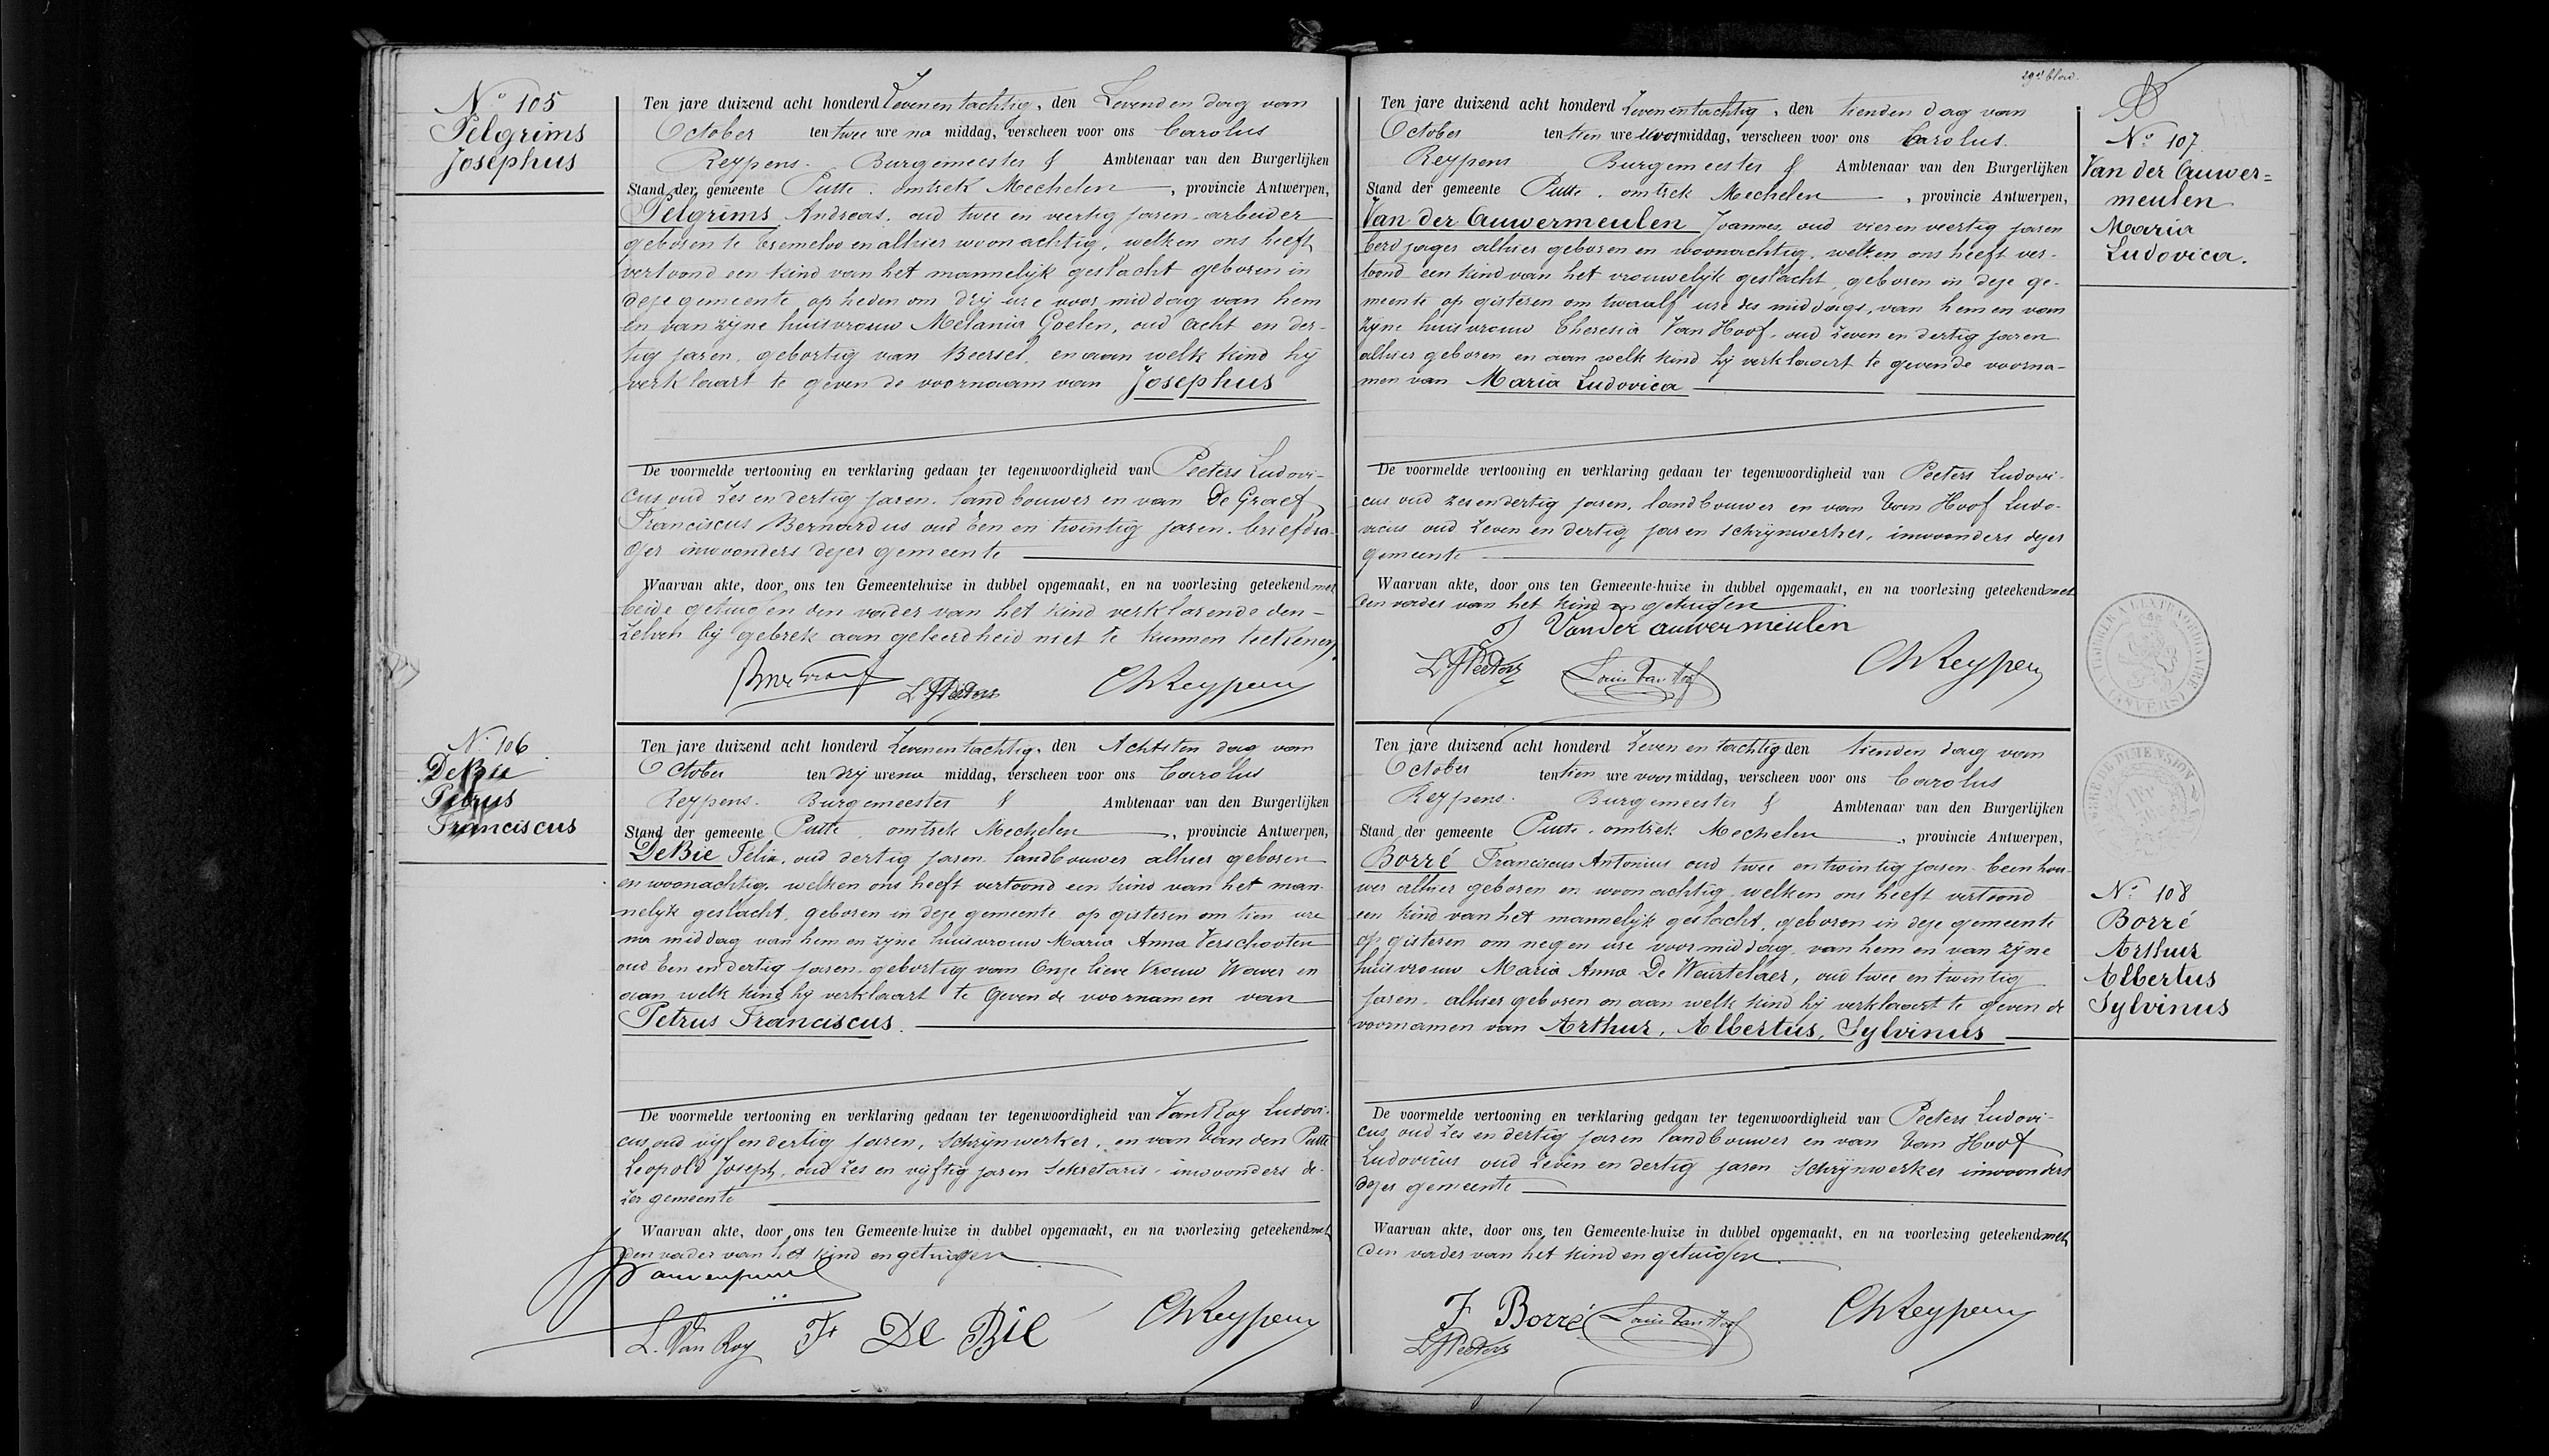 Nº 105
Pelgrims
Josephus
Ten jare duizend acht honderd Zevenentachtig, den Zevenden dag van
October ten twee ure na middag, verscheen voor ons Carolus
Reypens. Burgemeester & Ambtenaar van den Burgerlijken
Stand der gemeente Putte. omtrek Mechelen, provincie Antwerpen,
Pelgrims Andreas, oud twee en veertig jaren arbeider
geboren te Tremeloo en alhier woonachtig, welken ons heeft
vertoond een kind van het mannelijk geslacht geboren in
deze gemeente, op heden om drij ure voor middag van hem
en van zijne huisvrouw Melania Goelen, oud acht en der-
tig jaren, gebortig van Beersel, en aan welk kind hij
verklaart te geven de voornaam van Josephus
De voormelde vertooning en verklaring gedaan ter tegenwoordigheid van Peeters Ludovi-
cus oud zes en dertig jaren, landbouwer en van De Graef
Franciscus Bernardus oud Een en twintig jaren, briefdra-
ger inwoonders dezer gemeente
Waarvan akte, door ons ten Gemeentehuize in dubbel opgemaakt, en na voorlezing geteekend met
beide getuigen den vader van het kind verklarende den-
zelven bij gebrek aan geleerdheid niet te kunnen teekenen.
L J Peeters
Ch Reypens
N. 106
De Bie
Petrus
Franciscus
Ten jare duizend acht honderd Zevenentachtig, den Achtsten dag van
October ten drij ure na middag, verscheen voor ons Carolus
Reypens. Burgemeester & Ambtenaar van den Burgerlijken
Stand der gemeente Putte, omtrek Mechelen, provincie Antwerpen,
De Bie Felix, oud dertig jaren landbouwer alhier geboren
en woonachtig, welken ons heeft vertoond een kind van het man-
nelijk geslacht, geboren in deze gemeente op gisteren om tien ure
na middag van hem en zijne huisvrouw Maria Anna Verschooten
oud Een en dertig jaren, gebortig van Onze lieve Vrouw Waver en
aan welk kind hij verklaart te geven de voornamen van
Petrus Franciscus.
De voormelde vertooning en verklaring gedaan ter tegenwoordigheid van Van Roy Ludovi-
cus, oud vijf en dertig jaren, Schrijnwerker, en van Van den Putte
Leopold Joseph, oud zes en vijftig jaren Sekretaris, inwoonders de-
zer gemeente
Waarvan akte, door ons ten Gemeente-huize in dubbel opgemaakt, en na voorlezing geteekend met
den vader van het kind en getuigen
L. Van Roy Fx De Bie Ch Reypens
29ste blad.
Ten jare duizend acht honderd Zevenentachtig, den tienden dag van
October ten tien ure voor middag, verscheen voor ons Carolus
Reypens Burgemeester & Ambtenaar van den Burgerlijken
Stand der gemeente Putte, omtrek Mechelen, provincie Antwerpen,
Van der Auwermeulen Joannes, oud vier en veertig jaren
alhier geboren en woonachtig, welken ons heeft ver-
toond een kind van het vrouwelijk geslacht, geboren in deze ge-
meente op gisteren om twaalf ure des middags, van hem en van
zijne huisvrouw Theresia Van Hoof, oud zeven en dertig jaren
alhier geboren en aan welk kind hij verklaart te geven de voorna-
men van Maria Ludovica
De voormelde vertooning en verklaring gedaan ter tegenwoordigheid van Peeters Ludovi-
cus oud zes en dertig jaren, landbouwer en van Van Hoof Ludo-
vicus oud zeven en dertig jaren schrijnwerker, inwoonders dezer
gemeente
Waarvan akte, door ons ten Gemeente-huize in dubbel opgemaakt, en na voorlezing geteekend met
den vader van het kind en getuigen
J Vander auwermeulen
L J Peeters Louis Van Hoof Ch Reypens
Nº 107
Van der Auwer=
meulen
Maria
Ludovica.
Ten jare duizend acht honderd Zeven en tachtig den tienden dag van
October ten tien ure voor middag, verscheen voor ons Carolus
Reypens. Burgemeester & Ambtenaar van den Burgerlijken
Stand der gemeente Putte, omtrek Mechelen, provincie Antwerpen,
Borré Franciscus Antonius oud twee en twintig jaren beenhou-
wer alhier geboren en woonachtig welken ons heeft vertoond
een kind van het mannelijk geslacht, geboren in deze gemeente
op gisteren om negen ure voor middag, van hem en van zijne
huisvrouw Maria Anna De Weurtelaer, oud twee en twintig
jaren, alhier geboren en aan welk kind hij verklaart te geven de
voornamen van Arthur, Albertus, Sylvinus
De voormelde vertooning en verklaring gedaan ter tegenwoordigheid van Peeters Ludovi-
cus oud zes en dertig jaren landbouwer en van Van Hoof
Ludovicus oud zeven en dertig jaren schrijnwerker inwoonders
dezer gemeente
Waarvan akte, door ons ten Gemeente-huize in dubbel opgemaakt, en na voorlezing geteekend met
den vader van het kind en getuigen
F Borré Louis Van Hoof Ch Reypens
L J Peeters
Nº 108
Borré
Arthur
Albertus
Sylvinus